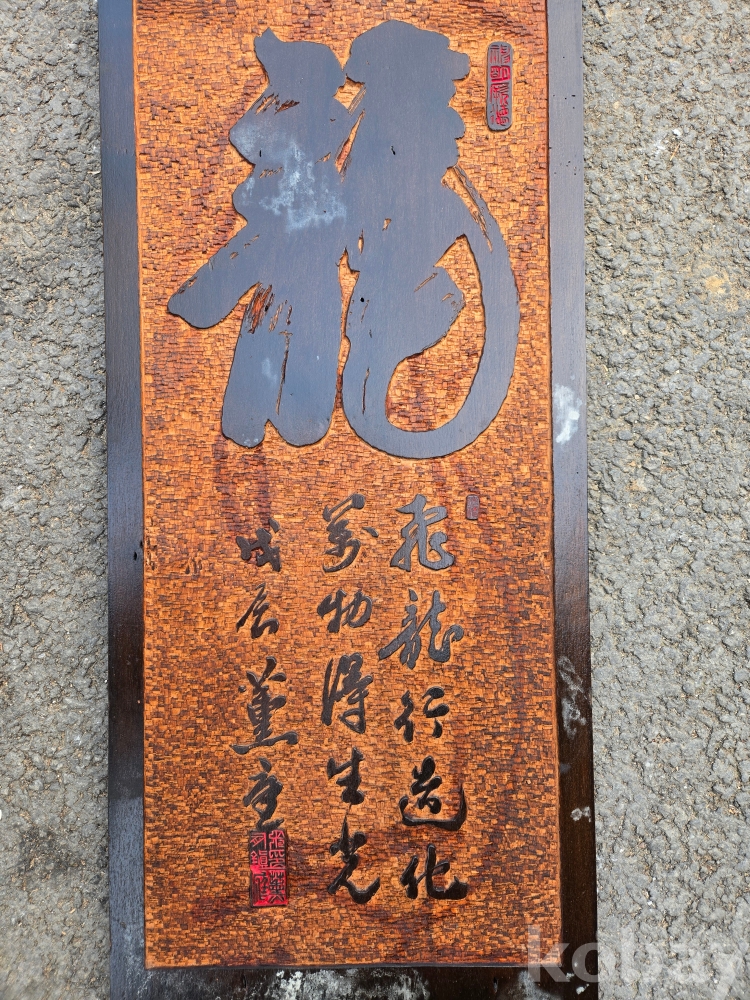 龍
飛龍行造化
萬物得生光
戊辰 薰室
kobay